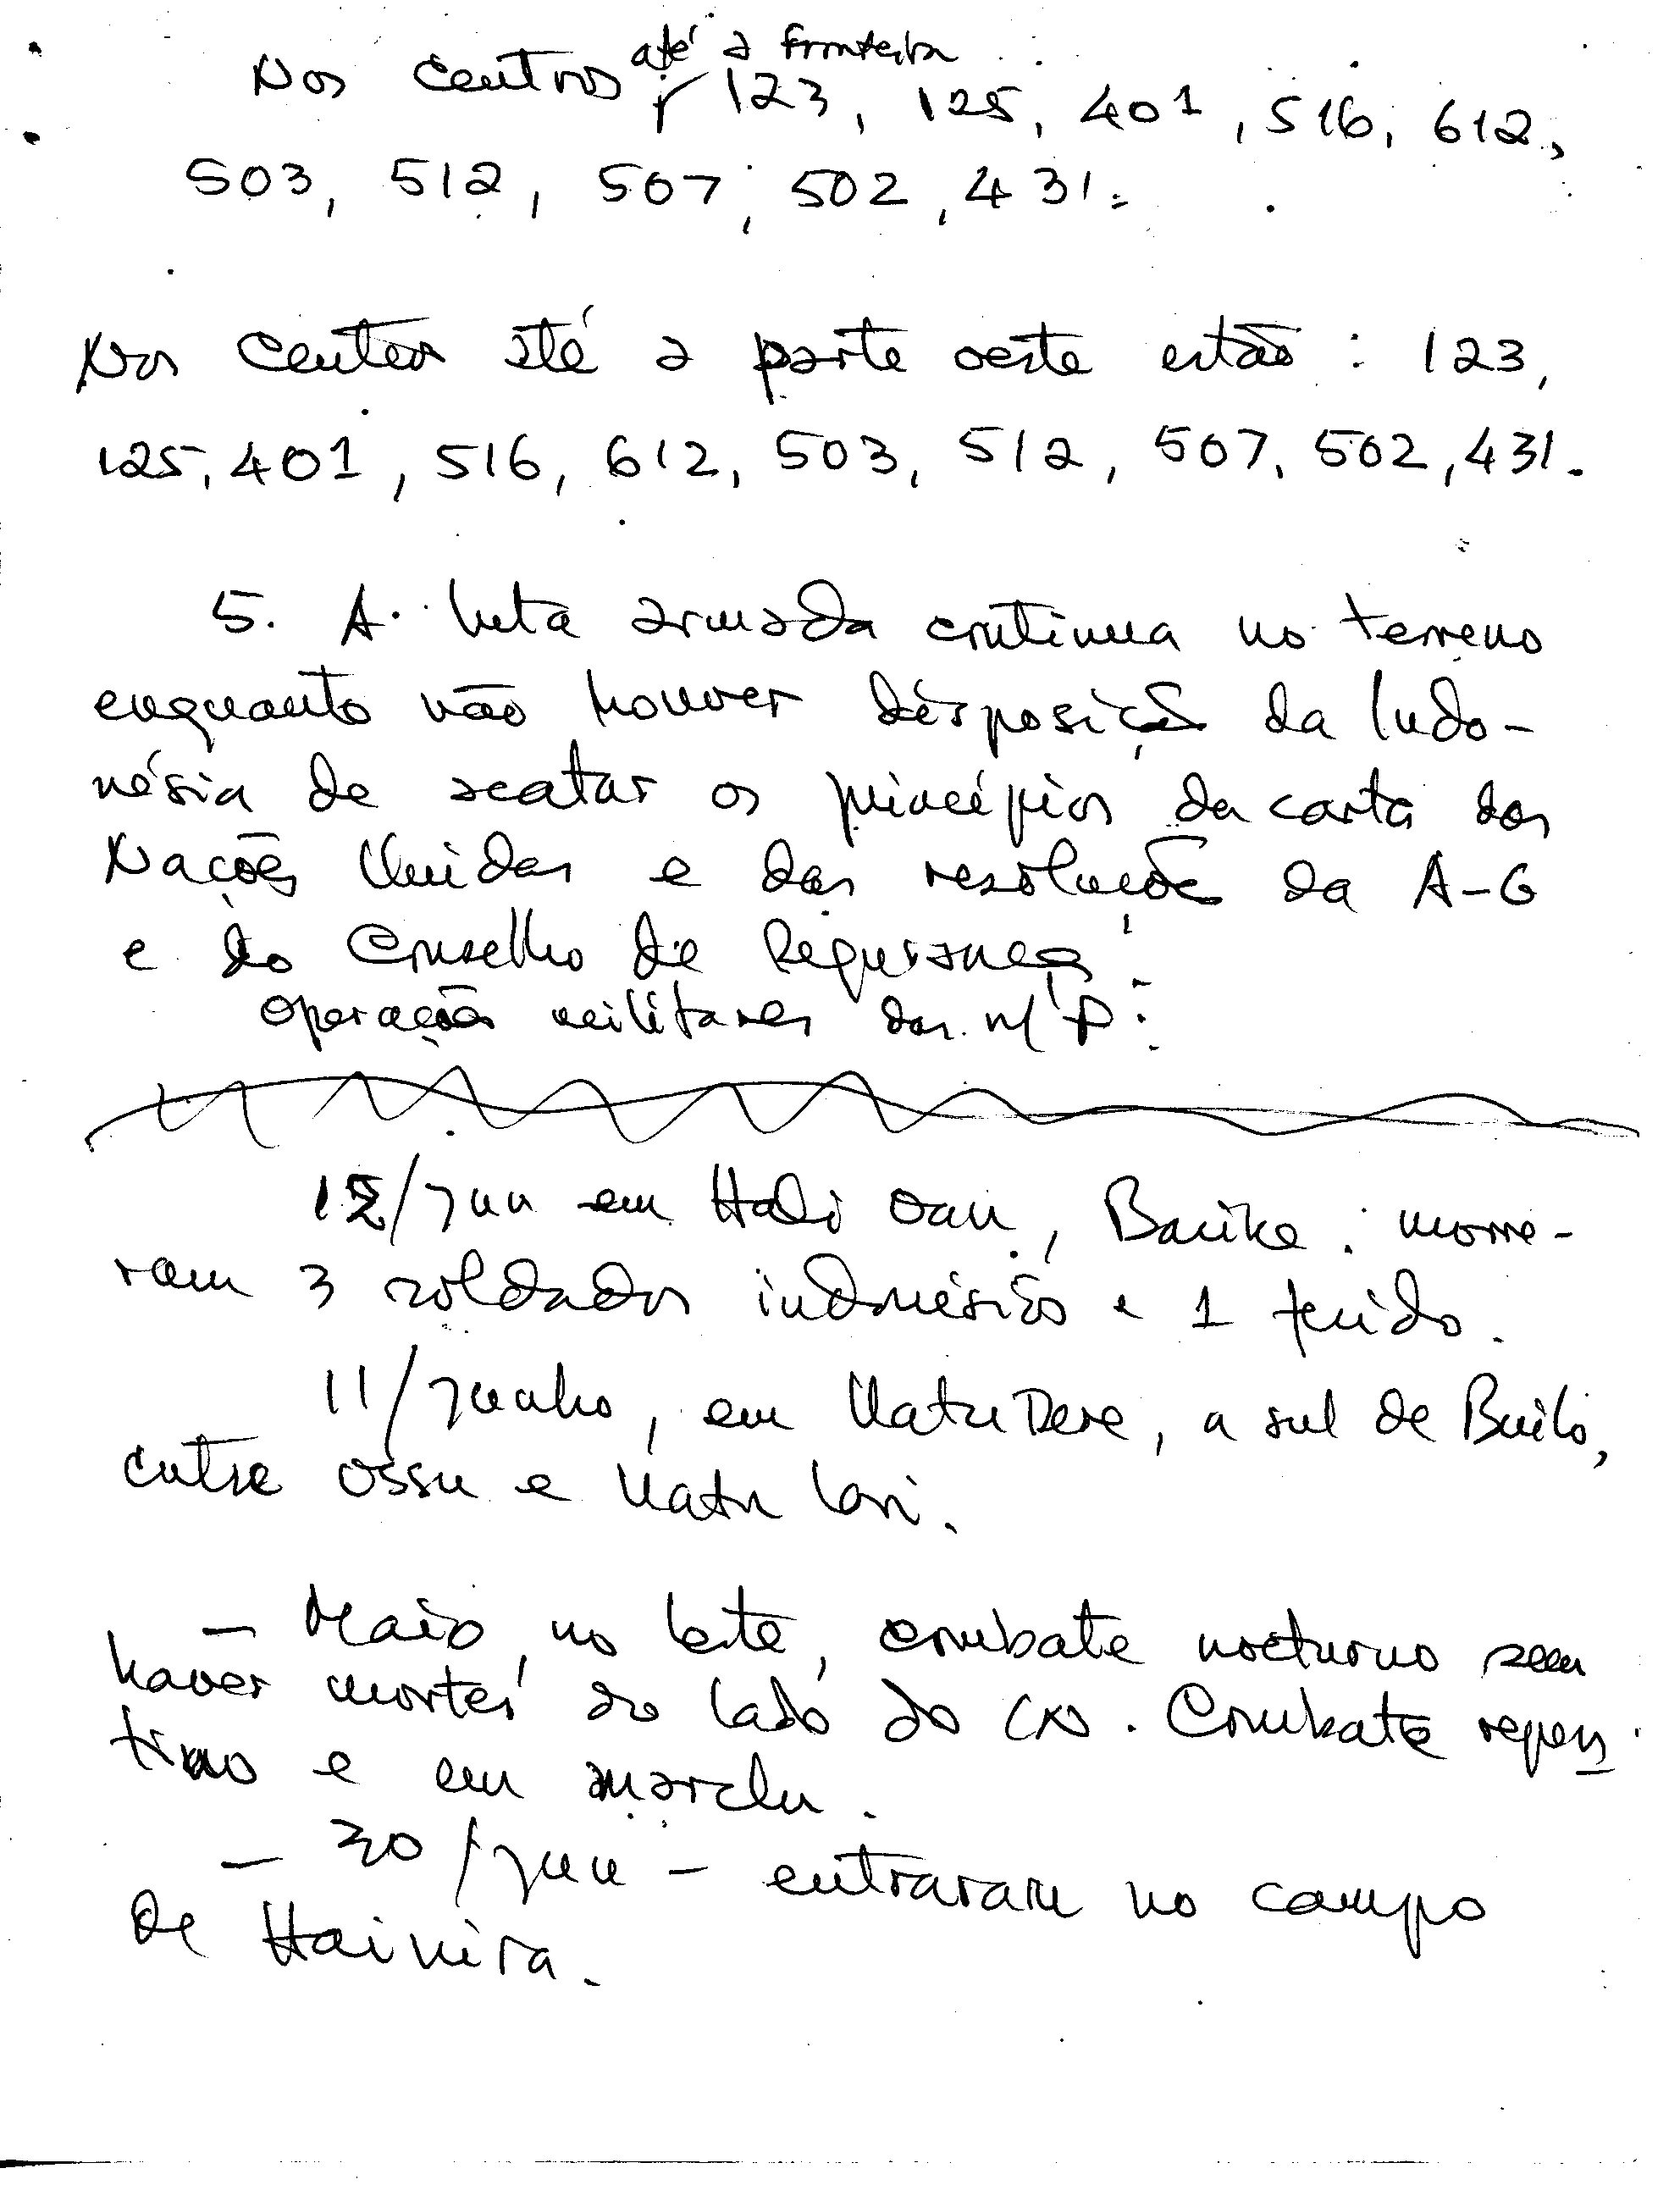 até a fronteira
Nos Centros 123, 125, 401, 516, 612,
503, 512, 507, 502, 431.
Nos Centros até a parte oeste estão : 123,
125, 401, 516, 612, 503, 512, 507, 502, 431.
5. A luta armada continua no terreno
enquanto não houver disposição da Indo-
nésia de acatar os princípios da carta das
Nações Unidas e das resoluções da A-G
e do Conselho de Segurança.
Operações militares das :
/Jun em Hali Oan, : morre-
ram 3 soldados indonésios e 1 ferido.
11/Junho, em Uatu Dere, a sul de Builó,
entre Ossu e Uatu Lari.
- Maio, no leste, combate nocturno sem
haver mortes ao lado do CN. Combate repen
tino e em marcha.
- 30/Jun - entraram no campo
de Hainira.